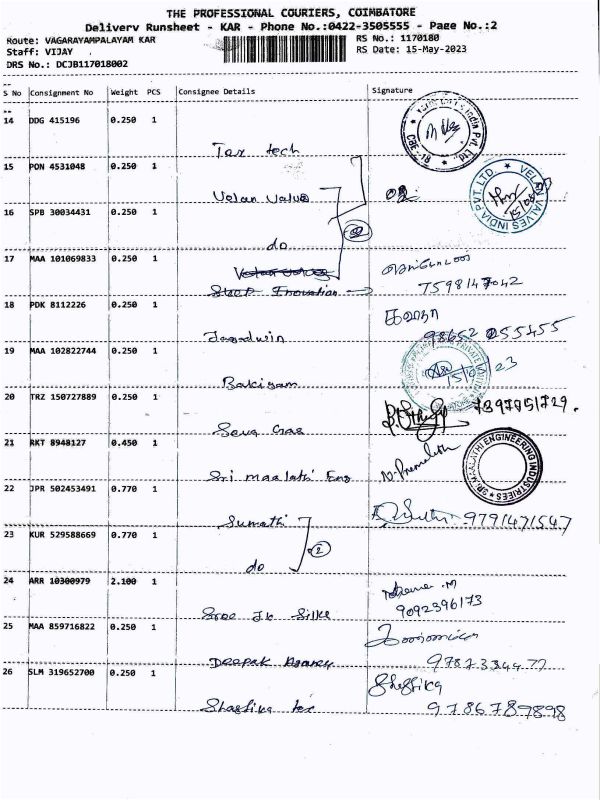 THE PROFESSIONAL COURIERS, COIMBATORE
Delivery Runsheet - KAR - Phone No.:0422-3505555 - Page No.:2
Route: VAGARAYAMPALAYAM KAR RS No.: 1170180
Staff: VIJAY RS Date: 15-May-2023
DRS No.: DCJB117018002
S No Consignment No Weight PCS Consignee Details Signature
14 DDG 415196 0.250 1
CBE-18
Tex tech
15 PON 4531048 0.250 1
VELAN VALVES INDIA PVT. LTD.
Velan Valve
16 SPB 30034431 0.250 1
do
17 MAA 101069833 0.250 1
7598147042
18 PDK 8112226 0.250 1
Jagadwin
19 MAA 102822744 0.250 1
15/05/23
Bakiyam
20 TRZ 150727889 0.250 1
Seva Gas
21 RKT 8948127 0.450 1
SRI MAALATHI ENGINEERING INDUSTRIEES
Sri Maalathi Eng
22 JPR 502453491 0.770 1
Sumathi 9791471547
23 KUR 529588669 0.770 1
2
do
24 ARR 10300979 2.100 1
9092396173
Sree Jk Silks
25 MAA 859716822 0.250 1
Deepak
26 SLM 319652700 0.250 1
Shastika tex 9786789898